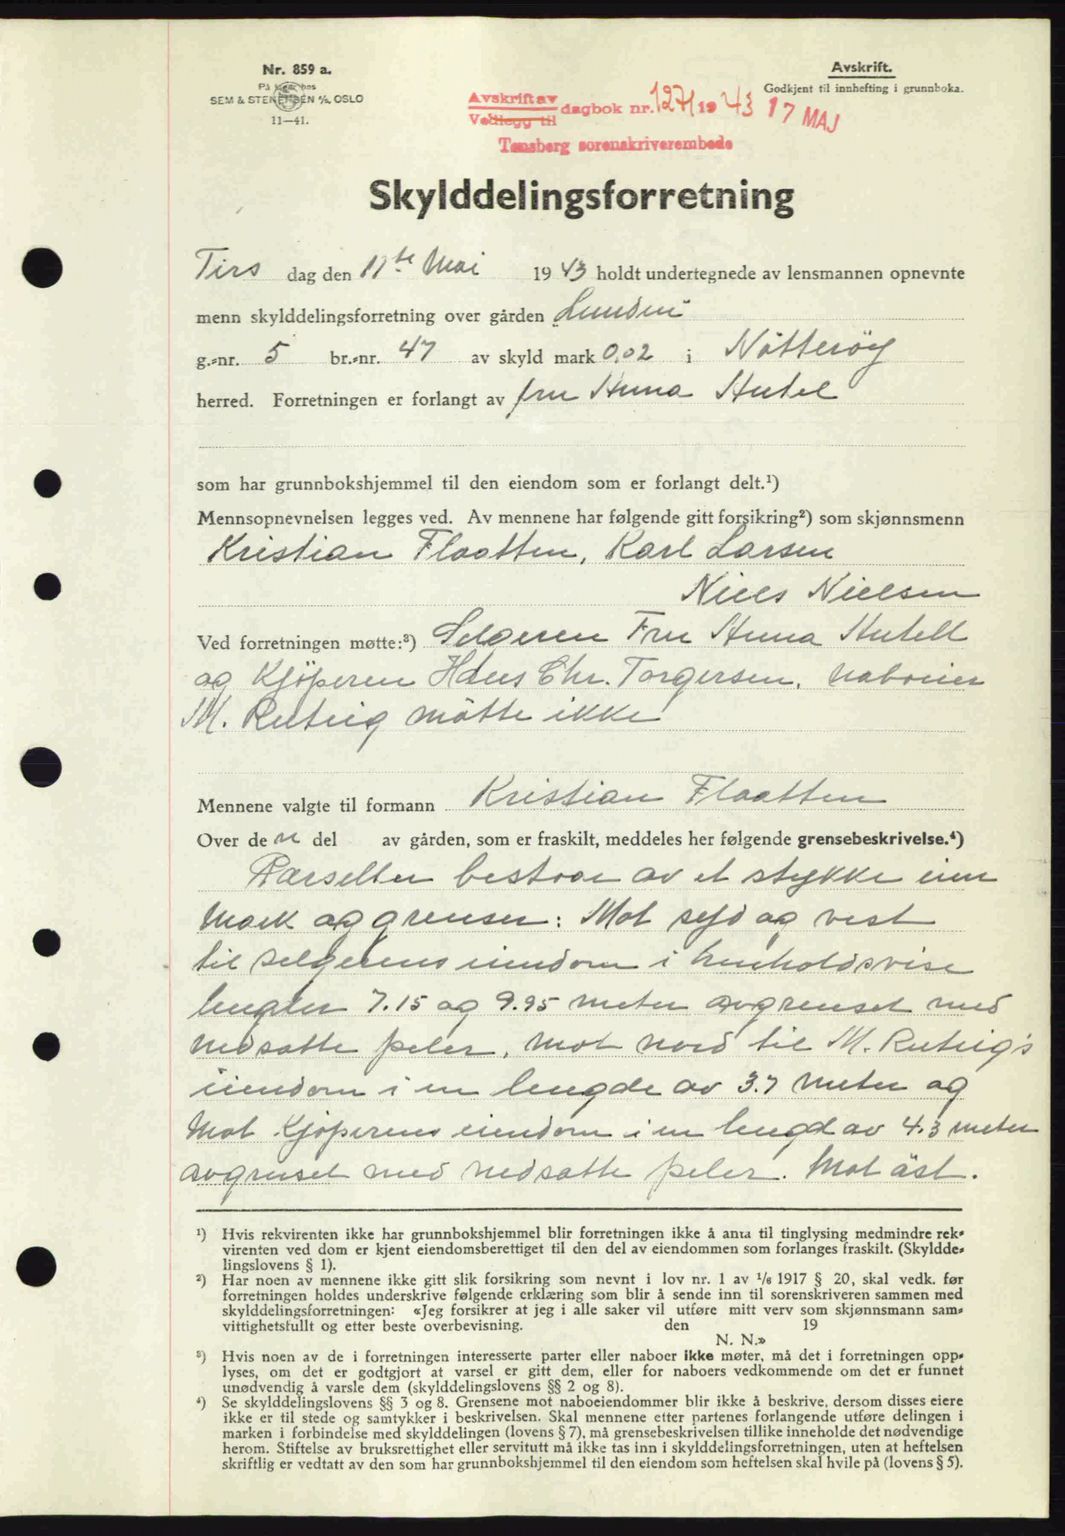 Nr. 859 a.
På lager hos
SEM & STENERSEN A/S, OSLO
11—41.
Avskrift.
Godkjent til innhefting i grunnboka.
Avskrift av
Vedlegg til
dagbok nr. 1271 1943 17 MAJ
Tønsberg sorenskriverembede
Skylddelingsforretning
Tirs dag den 11te Mai 1943 holdt undertegnede av lensmannen opnevnte
menn skylddelingsforretning over gården „Lunden"
g.-nr. 5 br.-nr. 47 av skyld mark 0,02 i Nötteröy
herred. Forretningen er forlangt av fru Anna
som har grunnbokshjemmel til den eiendom som er forlangt delt.¹)
Mennsopnevnelsen legges ved. Av mennene har følgende gitt forsikring²) som skjønnsmenn
Kristian Flaatten, Karl Larsen
Niels Nielsen
Ved forretningen møtte:³) Selgeren Fru Anna
og Kjöperen Hans Chr. Torgersen, naboeier
M. Rutsig mötte ikke
Mennene valgte til formann Kristian Flaatten
Over den del av gården, som er fraskilt, meddeles her følgende grensebeskrivelse.⁴)
Parsellen bestaar av et stykke
mark og grenser: Mot syd og vest
til selgerens eiendom i henholdsvise
lengder 7.15 og 9.95 meter avgrenset med
nedsatte peler, mot nord til M. Rutsig's
eiendom i en lengde av 3.7 meter og
mot Kjöperens eiendom i en lengd av 4.3 meter
avgrenset med nedsatte peler. Mot äst.
¹) Hvis rekvirenten ikke har grunnbokshjemmel blir forretningen ikke å anta til tinglysing medmindre rek-
virenten ved dom er kjent eiendomsberettiget til den del av eiendommen som forlanges fraskilt. (Skyldde-
lingslovens § 1).
²) Har noen av mennene ikke gitt slik forsikring som nevnt i lov nr. 1 av ¹/₆ 1917 § 20, skal vedk. før
forretningen holdes underskrive følgende erklæring som blir å sende inn til sorenskriveren sammen med
skylddelingsforretningen: «Jeg forsikrer at jeg i alle saker vil utføre mitt verv som skjønnsmann sam-
vittighetsfullt og etter beste overbevisning. den 19
N. N.»
³) Hvis noen av de i forretningen interesserte parter eller naboer ikke møter, må det i forretningen opp-
lyses, om det er godtgjort at varsel er gitt dem, eller for naboers vedkommende om det er funnet
unødvendig å varsle dem (skylddelingslovens §§ 2 og 8).
⁴) Se skylddelingslovens §§ 3 og 8. Grensene mot naboeiendommer blir ikke å beskrive, dersom disses eiere
ikke er til stede og samtykker i beskrivelsen. Skal mennene etter partenes forlangende utføre delingen i
marken i forbindelse med skylddelingen (lovens § 7), må grensebeskrivelsen tillike inneholde det nødvendige
herom. Stiftelse av bruksrettighet eller servitutt må ikke tas inn i skylddelingsforretningen, uten at heftelsen
skriftlig er vedtatt av den som har grunnbokshjemmel til den eiendom som heftelsen skal hvile på (lovens § 5).